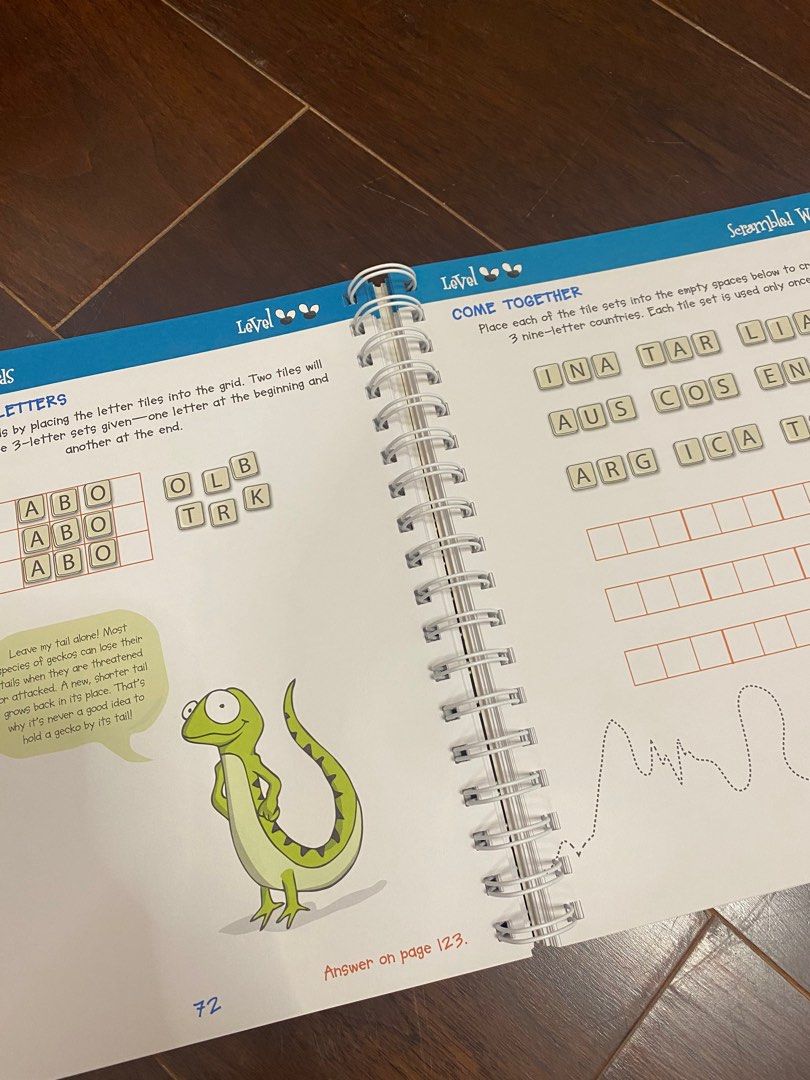 Level
LETTERS
by placing the letter tiles into the grid. Two tiles will
3-letter sets given—one letter at the beginning and
another at the end.
A B O
A B O
A B O
O L B
T R K
Leave my tail alone! Most
of geckos can lose their
tails when they are threatened
or attacked. A new, shorter tail
grows back in its place. That's
why it's never a good idea to
hold a gecko by its tail!
Answer on page 123.
72
Level
Scrambled
COME TOGETHER
Place each of the tile sets into the empty spaces below to
3 nine-letter countries. Each tile set is used only once
I N A T A R L I A
A U S C O S E N
A R G I C A T